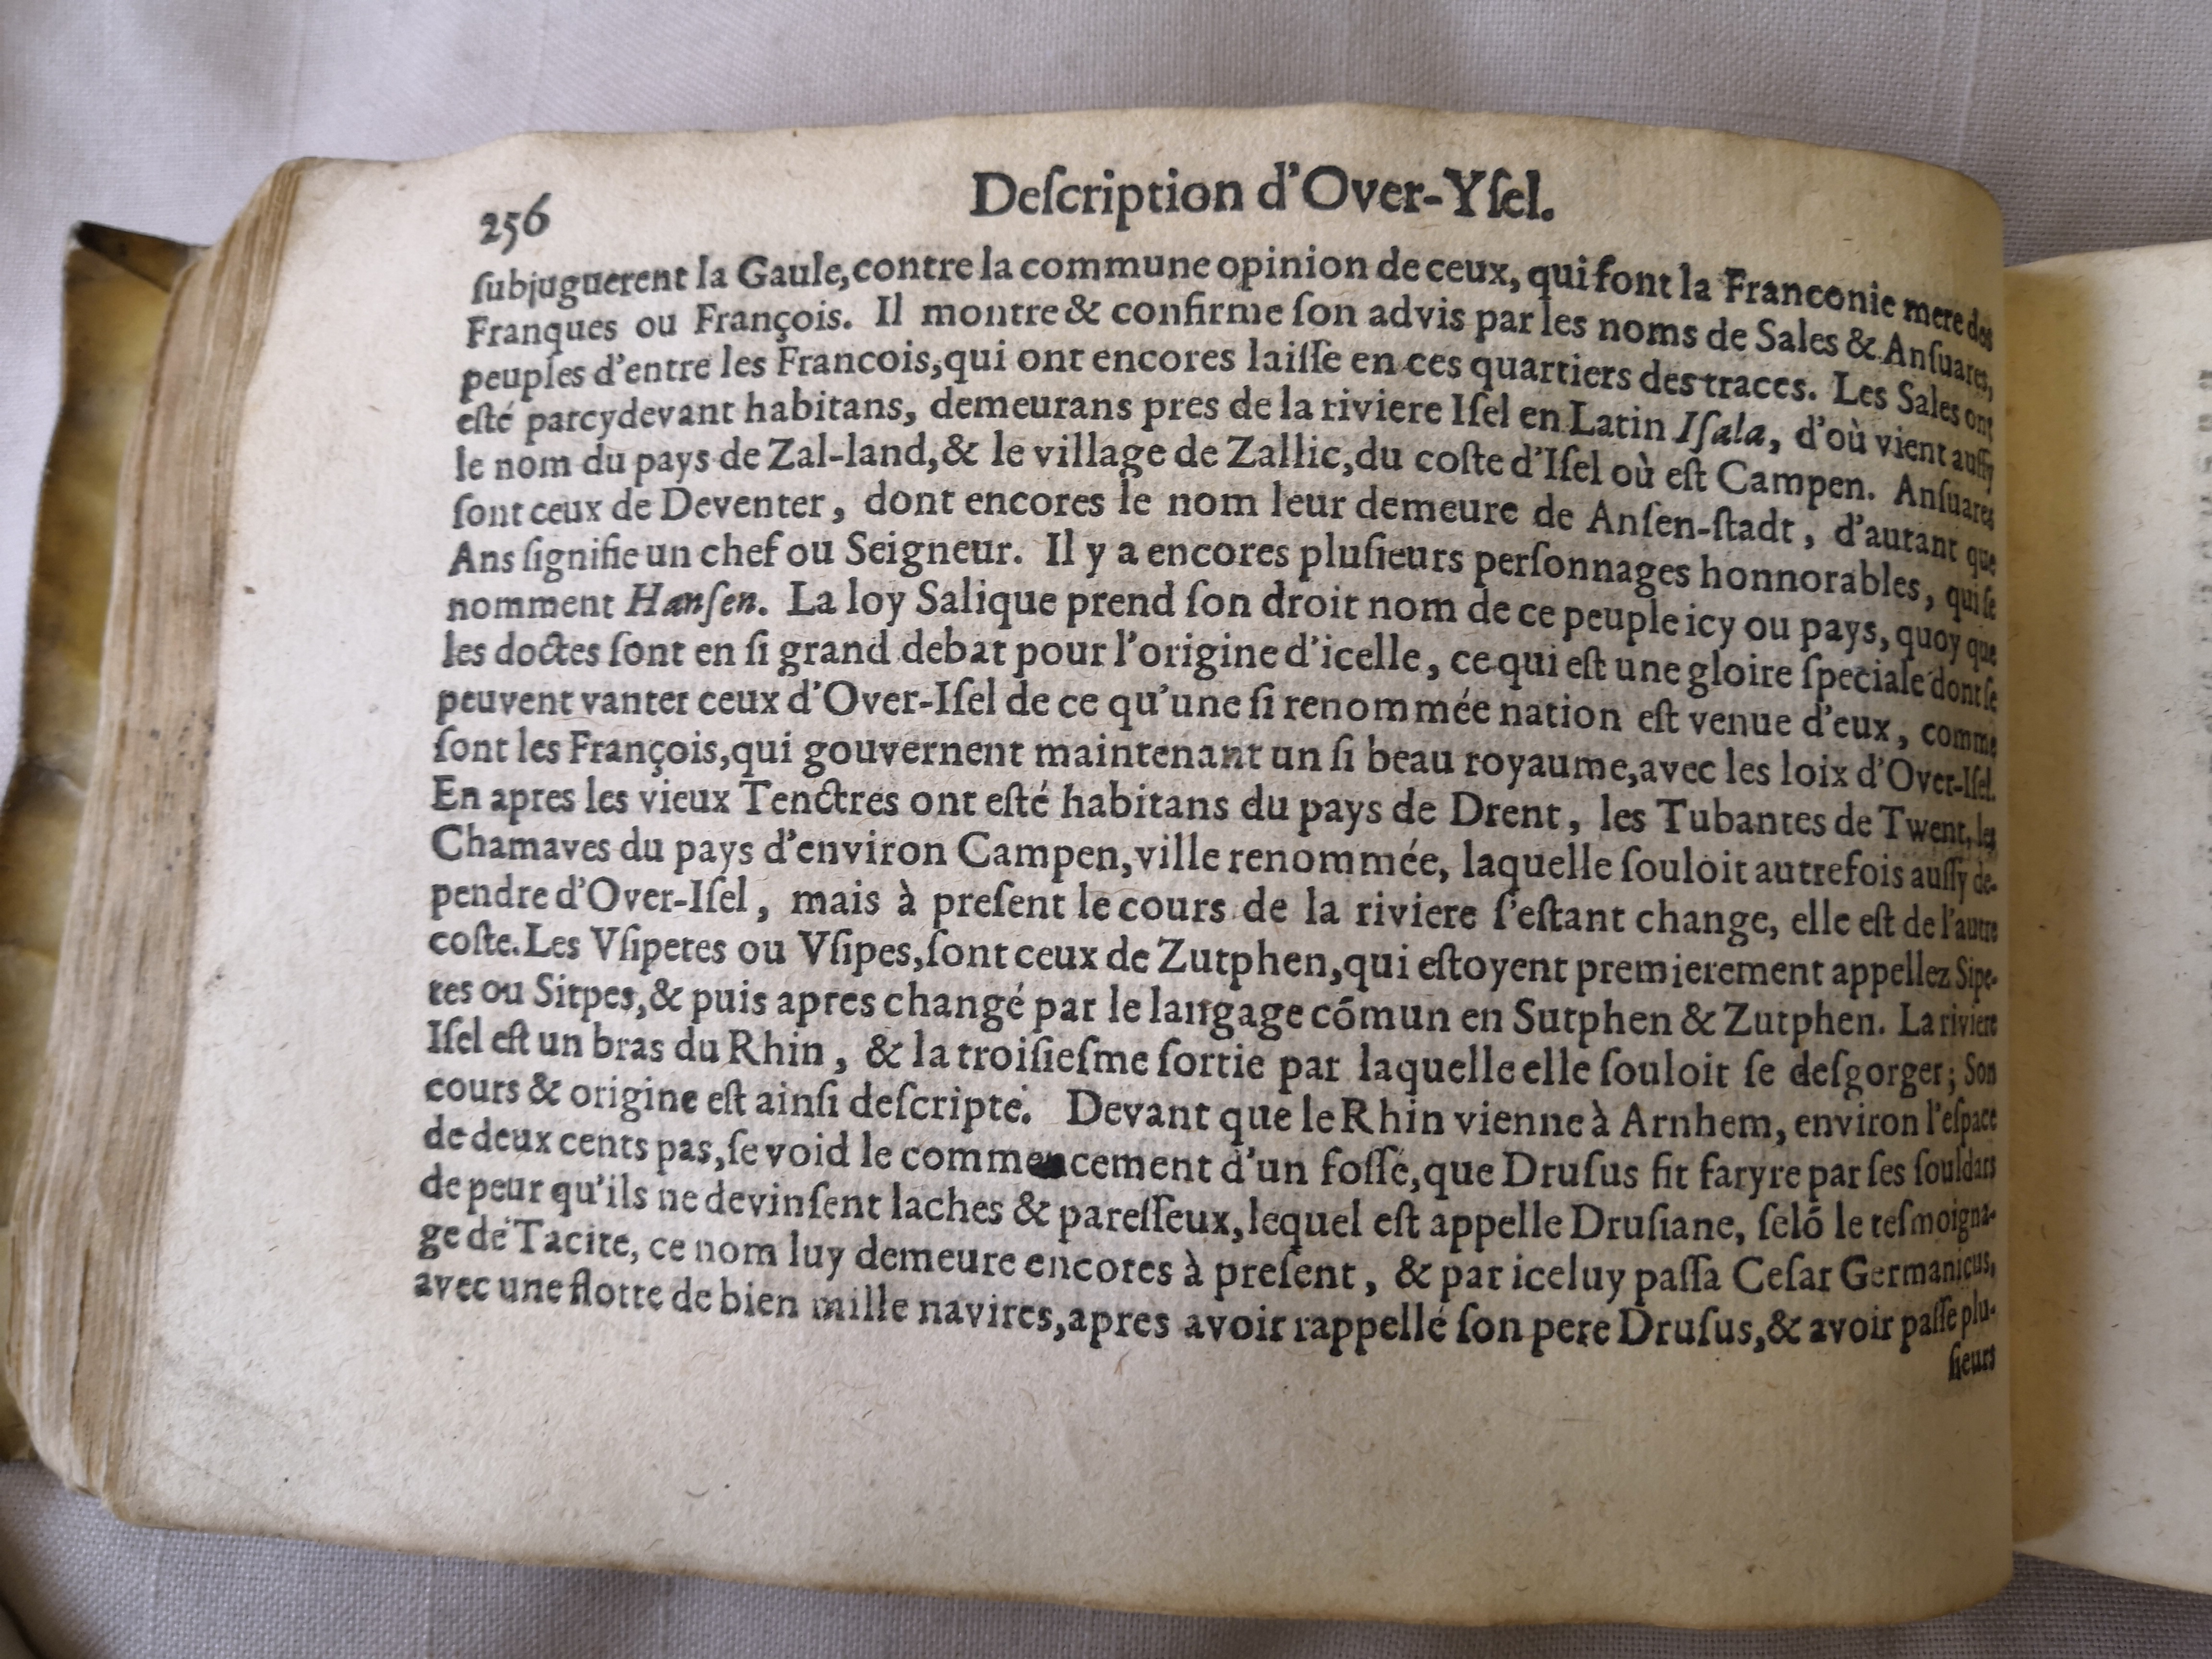 256
Deſcription d'Over-Yſel.
ſubjuguerent la Gaule, contre la commune opinion de ceux, qui font la Franconie mere des
Franques ou François. Il montre & confirme ſon advis par les noms de Sales & Anſuares,
peuples d'entre les Francois, qui ont encores laiſſe en ces quartiers des traces. Les Sales ont
eſté parcydevant habitans, demeurans pres de la riviere Iſel en Latin Iſala, d'où vient auſſy
le nom du pays de Zal-land, & le village de Zallic, du coſte d'Iſel où eſt Campen. Anſuares
ſont ceux de Deventer, dont encores le nom leur demeure de Anſen-ſtadt, d'autant que
Ans ſignifie un chef ou Seigneur. Il y a encores pluſieurs perſonnages honnorables, qui ſe
nomment Hanſen. La loy Salique prend ſon droit nom de ce peuple icy ou pays, quoy que
les doctes ſont en ſi grand debat pour l'origine d'icelle, ce qui eſt une gloire ſpeciale dont ſe
peuvent vanter ceux d'Over-Iſel de ce qu'une ſi renommée nation eſt venue d'eux, comme
ſont les François, qui gouvernent maintenant un ſi beau royaume, avec les loix d'Over-Iſel.
En apres les vieux Tenctres ont eſté habitans du pays de Drent, les Tubantes de Twent, les
Chamaves du pays d'environ Campen, ville renommée, laquelle ſouloit autrefois auſſy de-
pendre d'Over-Iſel, mais à preſent le cours de la riviere ſ'eſtant change, elle eſt de l'autre
coſte. Les Vſipetes ou Vſipes, ſont ceux de Zutphen, qui eſtoyent premierement appellez Sipe-
tes ou Sitpes, & puis apres changé par le langage cõmun en Sutphen & Zutphen. La riviere
Iſel eſt un bras du Rhin, & la troiſieſme ſortie par laquelle elle ſouloit ſe deſgorger; Son
cours & origine eſt ainſi deſcripte. Devant que le Rhin vienne à Arnhem, environ l'eſpace
de deux cents pas, ſe void le commencement d'un foſſé, que Druſus fit faryre par ſes ſouldats
de peur qu'ils ne devinſent laches & pareſſeux, lequel eſt appelle Druſiane, ſelõ le teſmoigna-
ge de Tacite, ce nom luy demeure encores à preſent, & par iceluy paſſa Ceſar Germanicus,
avec une flotte de bien mille navires, apres avoir rappellé ſon pere Druſus, & avoir paſſe plu-
ſieurs